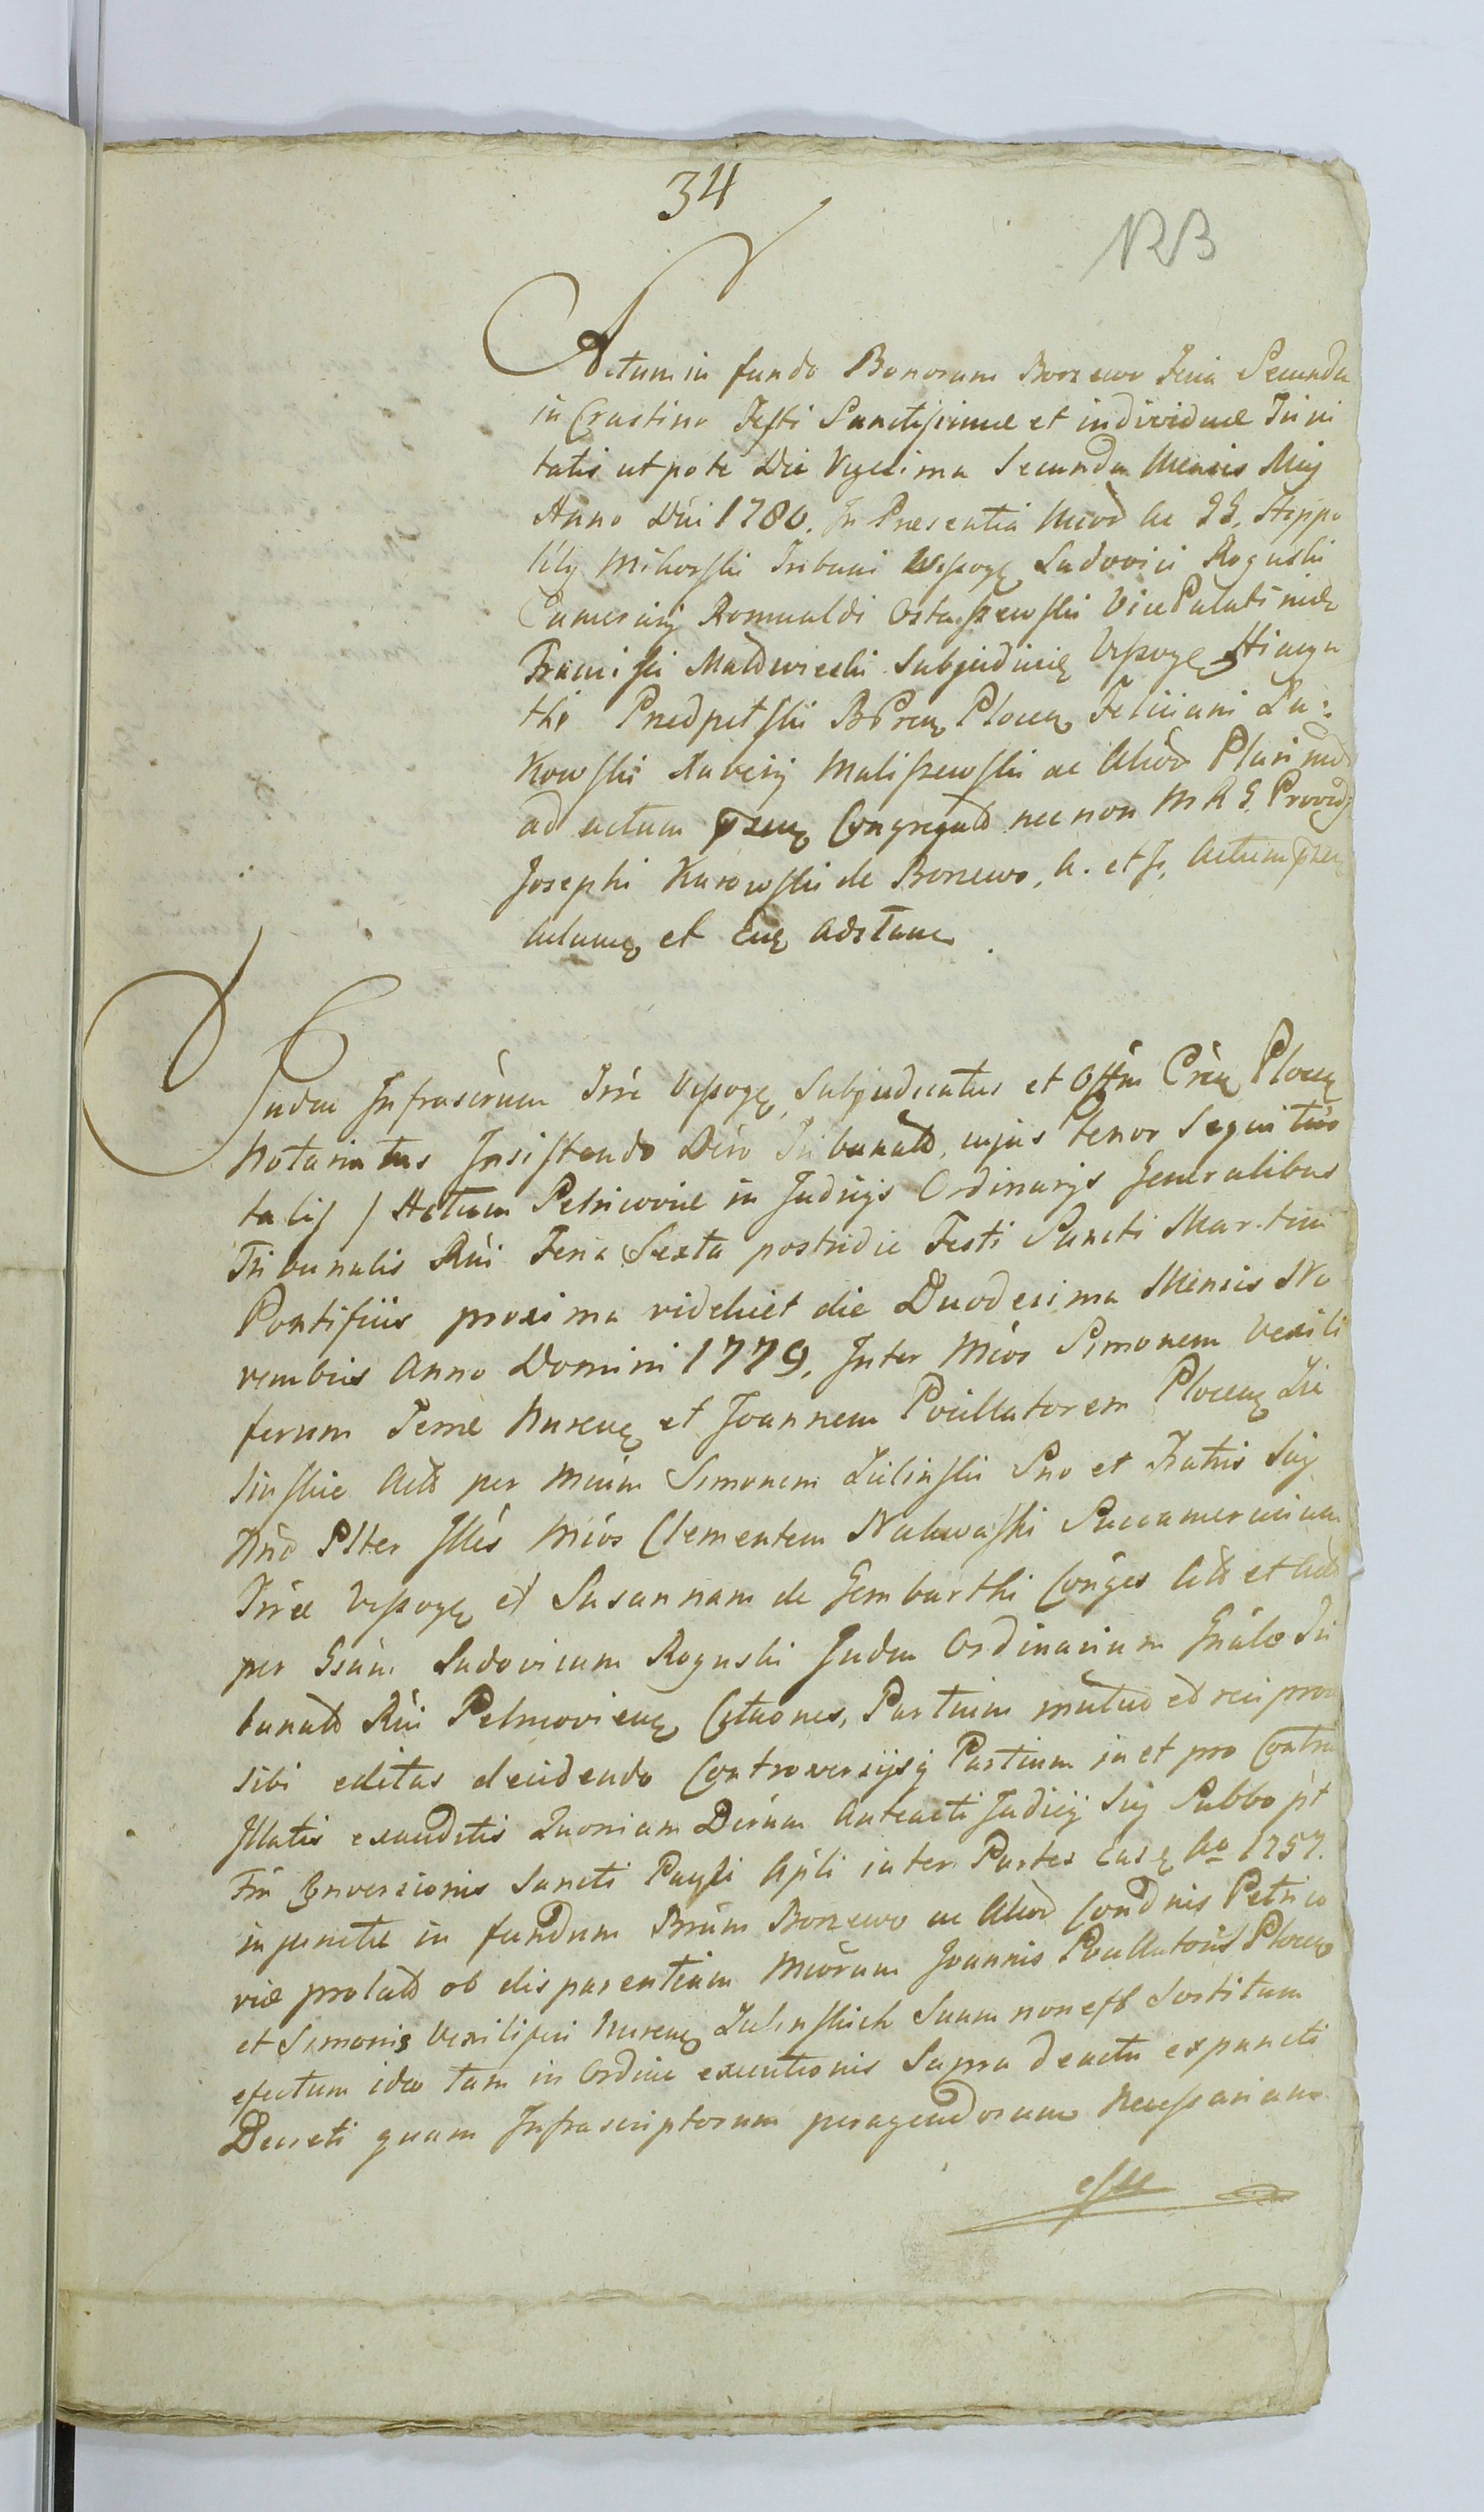 34
NB
Actum in fundo Bonorum Borzewo Feria Secunda
in Crastino Festi Sanctissimae et individuae Trini
tatis utpote Die Vigesima Secunda Mensis Maij
Anno Dni 1780. In Presentia Mcord ac GG. Hippo
lity Mikorski Tribuni Wyssogę Ludovici Roguski
Camerarij Romualdi Ostaszewski Vice Palatinide
Francisci Mlodwiecki Subjudicię Vyssogę Hiacyn
thi Przedpelski BPrenę Plocenę Feliciani Zu=
kowski Xaverij Maliszewski ac Aliord Plurimd
ad actum pnsenę Congregatd nec non M A G. Provid
Josephi Karowski de Borzewo, A. et J. Actum pnsen
Actumę et Euę Adstann.
Judm Infrascrium Trrae Vyssogę, Subjudicatus et Offm Crenę Plocenę
Notariatus Insistendo Dcro Tribunatd, cujus tenor Sequitur
talis / Actum Petricoviae in Judicijs Ordinarijs Generalibus
Tribunalis Rni Feria Sexta postridie Festi Sancti Martini
Pontificis proxima videlicet die Duodecima Mensis No
vembris Anno Domini 1779. Inter Mcos Simonem Vexili
ferum Terrae Nurenę et Joannem Pocillatorem Plocenę Zie
linskie Actd per Mcum Simonem Zielinski Suo et Fratris Sui
Nnd Plter Illes Mcos Clementem Nakwaski Succamerarium
Trrae Vyssogę et Susannam de Gembarthi Conges Citd et Actd
per Gsum Ludovicum Roguski Judm Ordinarium Gnale Tri
bunatd Rni Petricovienę Cttaones, Partium mutuo et reciproce
sibi editas decidendo Controversijsę Partium in et pro Contra
Illatis exauditis Quoniam Dcrum Anteacti Judicij Sui Sabbo pt
Fm Conversionis Sancti Pauli Apli inter Partes Easę Ao 1757.
injunctae in fundum Bnrum Borzewo ac Aliord Condnis Petrico
viae prolatd ob disparentiam Mcorum Joannis Pocillatoris Plocenę
et Simonis Vexiliferi Nurenę Zielinskich Suum non est Sortitum
efectum ideo tam in Ordine executionis Supra deactu expuncti
Decreti quam Infrascriptorum peragendorum Necessariam
esse